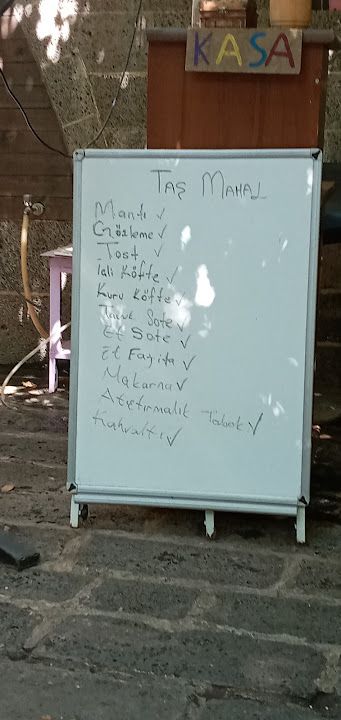 KASA
TAŞ MAHAL
Mantı ✓
Gözleme ✓
Tost ✓
İçli Köfte ✓
Kuru Köfte ✓
Tavuk Sote ✓
Et Sote ✓
Et Fajita ✓
Makarna ✓
Atıştırmalık Tabak ✓
Kahvaltı ✓